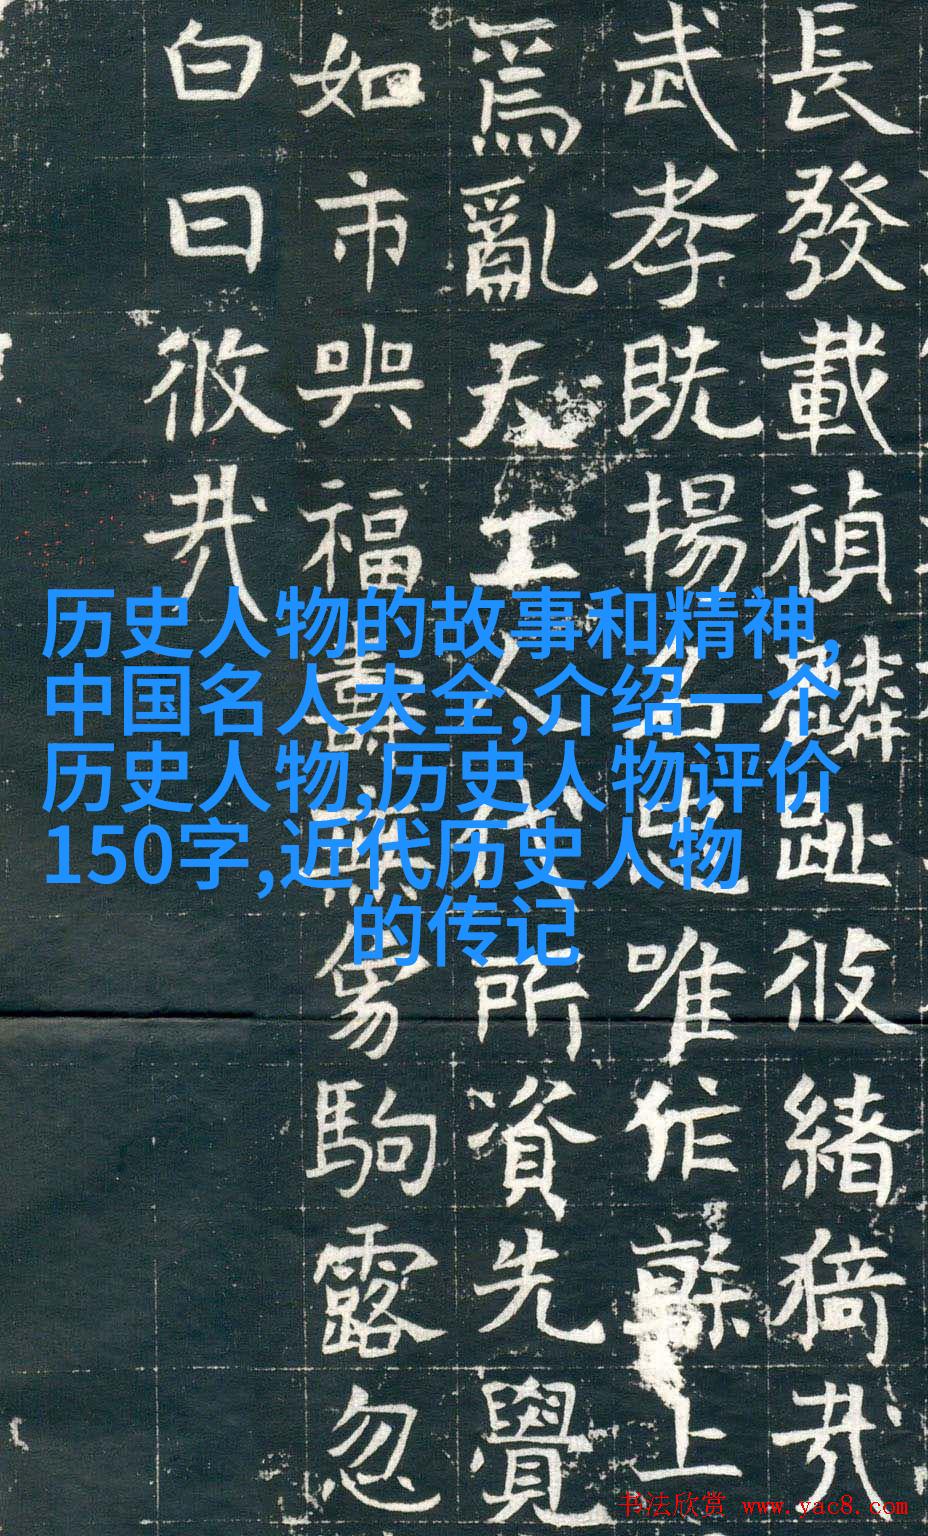 長發載禎麟趾攸緒猗哉
武孝既揚名唯作幹上
爲亂天工人代所資先覺
如市與福壽易駒露忽
白日攸哉
历史人物的故事和精神,
中国名人大全,介绍一个
历史人物,历史人物评价
150字,近代历史人物
的传记
书法欣赏 www.yac8.com